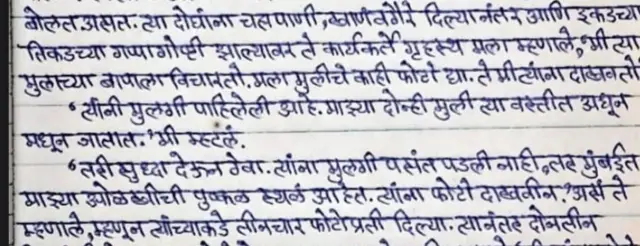 बोलत असत. त्या दोघांना चहापाणी, खाणं वगैरे दिल्यानंतर आणि इकडच्या
तिकडच्या गप्पागोष्टी झाल्यावर ते कार्यकर्ते गृहस्थ मला म्हणाले, "मी त्या
मुलाच्या बापाला विचारतो. मला मुलीचे काही फोटो द्या. ते मी त्यांना दाखवतो
'त्यांनी मुलगी पाहिलेली आहे. माझ्या दोन्ही मुली त्या वस्तीत अधून
मधून जातात.' मी म्हटलं.
'तरी सुध्दा देऊन ठेवा. त्यांना मुलगी पसंत पडली नाही, तर मुंबईत
माझ्या ओळखीची पुष्कळ स्थळं आहेत. त्यांना फोटो दाखवीन.' असं ते
म्हणाले, म्हणून त्यांच्याकडे तीनचार फोटोप्रती दिल्या. त्यानंतर दोनतीन